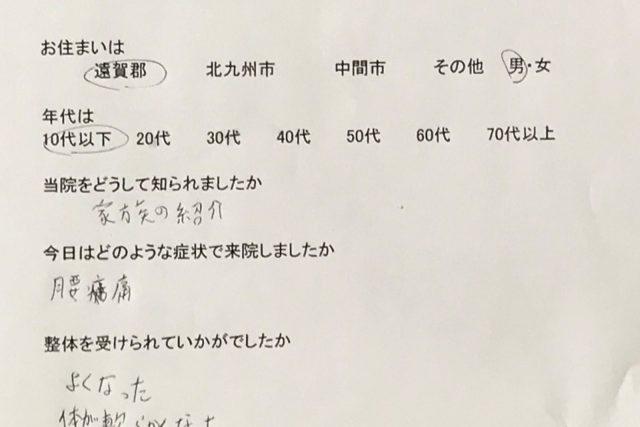 お住まいは
遠賀郡 北九州市 中間市 その他 男・女
年代は
10代以下 20代 30代 40代 50代 60代 70代以上
当院をどうして知られましたか
家族の紹介
今日はどのような症状で来院しましたか
腰痛
整体を受けられていかがでしたか
よくなった
体が軟らかくなった